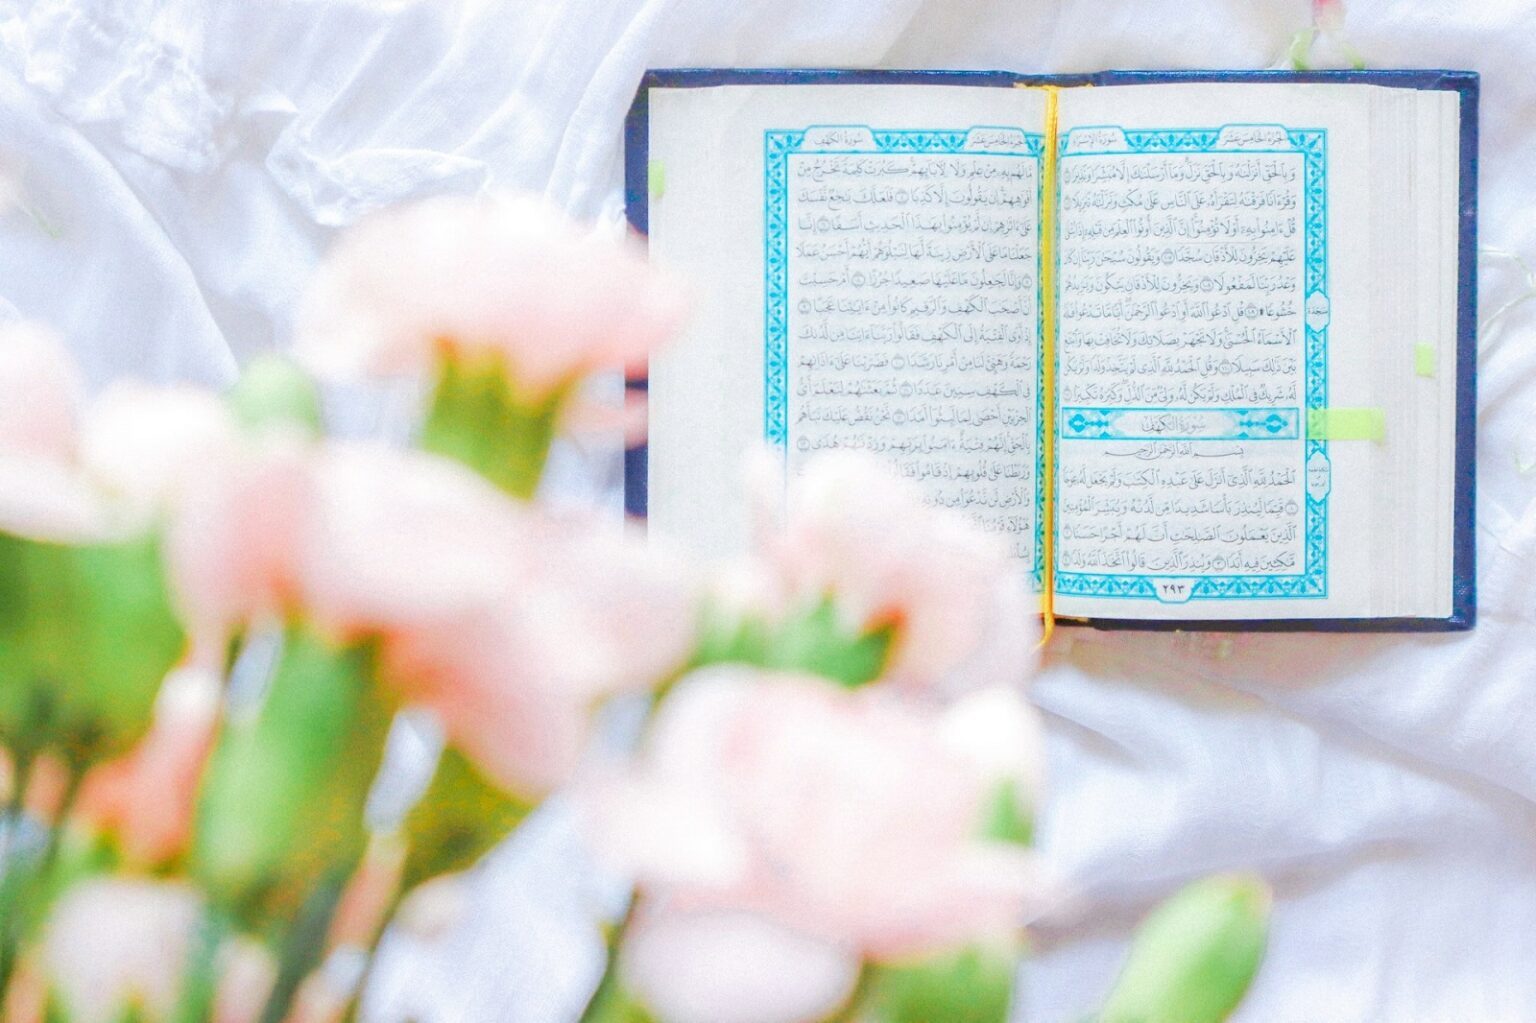 الجزء الخامس عشر
سورة الإسراء
وَبِالْحَقِّ أَنزَلْنَاهُ وَبِالْحَقِّ نَزَلَ وَمَا أَرْسَلْنَاكَ إِلَّا مُبَشِّرًا وَنَذِيرًا ١٠٥
وَقُرْءَانًا فَرَقْنَاهُ لِتَقْرَأَهُ عَلَى النَّاسِ عَلَى مُكْثٍ وَنَزَّلْنَاهُ تَنزِيلًا ١٠٦
قُلْ ءَامِنُوا بِهِ أَوْ لَا تُؤْمِنُوا إِنَّ الَّذِينَ أُوتُوا الْعِلْمَ مِن قَبْلِهِ إِذَا يُتْلَى
عَلَيْهِمْ يَخِرُّونَ لِلْأَذْقَانِ سُجَّدًا ١٠٧ وَيَقُولُونَ سُبْحَانَ رَبِّنَا إِن كَانَ
وَعْدُ رَبِّنَا لَمَفْعُولًا ١٠٨ وَيَخِرُّونَ لِلْأَذْقَانِ يَبْكُونَ وَيَزِيدُهُمْ
خُشُوعًا ۩ ١٠٩ قُلِ ادْعُوا اللَّهَ أَوِ ادْعُوا الرَّحْمَنَ أَيًّا مَّا تَدْعُوا فَلَهُ
الْأَسْمَاءُ الْحُسْنَى وَلَا تَجْهَرْ بِصَلَاتِكَ وَلَا تُخَافِتْ بِهَا وَابْتَغِ
بَيْنَ ذَلِكَ سَبِيلًا ١١٠ وَقُلِ الْحَمْدُ لِلَّهِ الَّذِي لَمْ يَتَّخِذْ وَلَدًا وَلَمْ يَكُن
لَّهُ شَرِيكٌ فِي الْمُلْكِ وَلَمْ يَكُن لَّهُ وَلِيٌّ مِّنَ الذُّلِّ وَكَبِّرْهُ تَكْبِيرًا ١١١
سورة الكهف
بِسْمِ اللَّهِ الرَّحْمَنِ الرَّحِيمِ
الْحَمْدُ لِلَّهِ الَّذِي أَنزَلَ عَلَى عَبْدِهِ الْكِتَابَ وَلَمْ يَجْعَل لَّهُ عِوَجًا
١ قَيِّمًا لِّيُنذِرَ بَأْسًا شَدِيدًا مِّن لَّدُنْهُ وَيُبَشِّرَ الْمُؤْمِنِينَ
الَّذِينَ يَعْمَلُونَ الصَّالِحَاتِ أَنَّ لَهُمْ أَجْرًا حَسَنًا ٢
مَّاكِثِينَ فِيهِ أَبَدًا ٣ وَيُنذِرَ الَّذِينَ قَالُوا اتَّخَذَ اللَّهُ وَلَدًا ٤
٢٩٣
سجدة
الجزء الخامس عشر
سورة الكهف
مَّا لَهُم بِهِ مِنْ عِلْمٍ وَلَا لِآبَائِهِمْ كَبُرَتْ كَلِمَةً تَخْرُجُ مِنْ
أَفْوَاهِهِمْ إِن يَقُولُونَ إِلَّا كَذِبًا ٥ فَلَعَلَّكَ بَاخِعٌ نَّفْسَكَ
عَلَى ءَاثَارِهِمْ إِن لَّمْ يُؤْمِنُوا بِهَذَا الْحَدِيثِ أَسَفًا ٦ إِنَّا
جَعَلْنَا مَا عَلَى الْأَرْضِ زِينَةً لَّهَا لِنَبْلُوَهُمْ أَيُّهُمْ أَحْسَنُ عَمَلًا
٧ وَإِنَّا لَجَاعِلُونَ مَا عَلَيْهَا صَعِيدًا جُرُزًا ٨ أَمْ حَسِبْتَ
أَنَّ أَصْحَابَ الْكَهْفِ وَالرَّقِيمِ كَانُوا مِنْ ءَايَاتِنَا عَجَبًا ٩
إِذْ أَوَى الْفِتْيَةُ إِلَى الْكَهْفِ فَقَالُوا رَبَّنَا ءَاتِنَا مِن لَّدُنكَ
رَحْمَةً وَهَيِّئْ لَنَا مِنْ أَمْرِنَا رَشَدًا ١٠ فَضَرَبْنَا عَلَى ءَاذَانِهِمْ
فِي الْكَهْفِ سِنِينَ عَدَدًا ١١ ثُمَّ بَعَثْنَاهُمْ لِنَعْلَمَ أَيُّ
الْحِزْبَيْنِ أَحْصَى لِمَا لَبِثُوا أَمَدًا ١٢ نَّحْنُ نَقُصُّ عَلَيْكَ نَبَأَهُم
بِالْحَقِّ إِنَّهُمْ فِتْيَةٌ ءَامَنُوا بِرَبِّهِمْ وَزِدْنَاهُمْ هُدًى ١٣
وَرَبَطْنَا عَلَى قُلُوبِهِمْ إِذْ قَامُوا فَقَالُوا
وَالْأَرْضِ لَن نَّدْعُوَا مِن دُونِهِ
هَؤُلَاءِ قَوْمُنَا